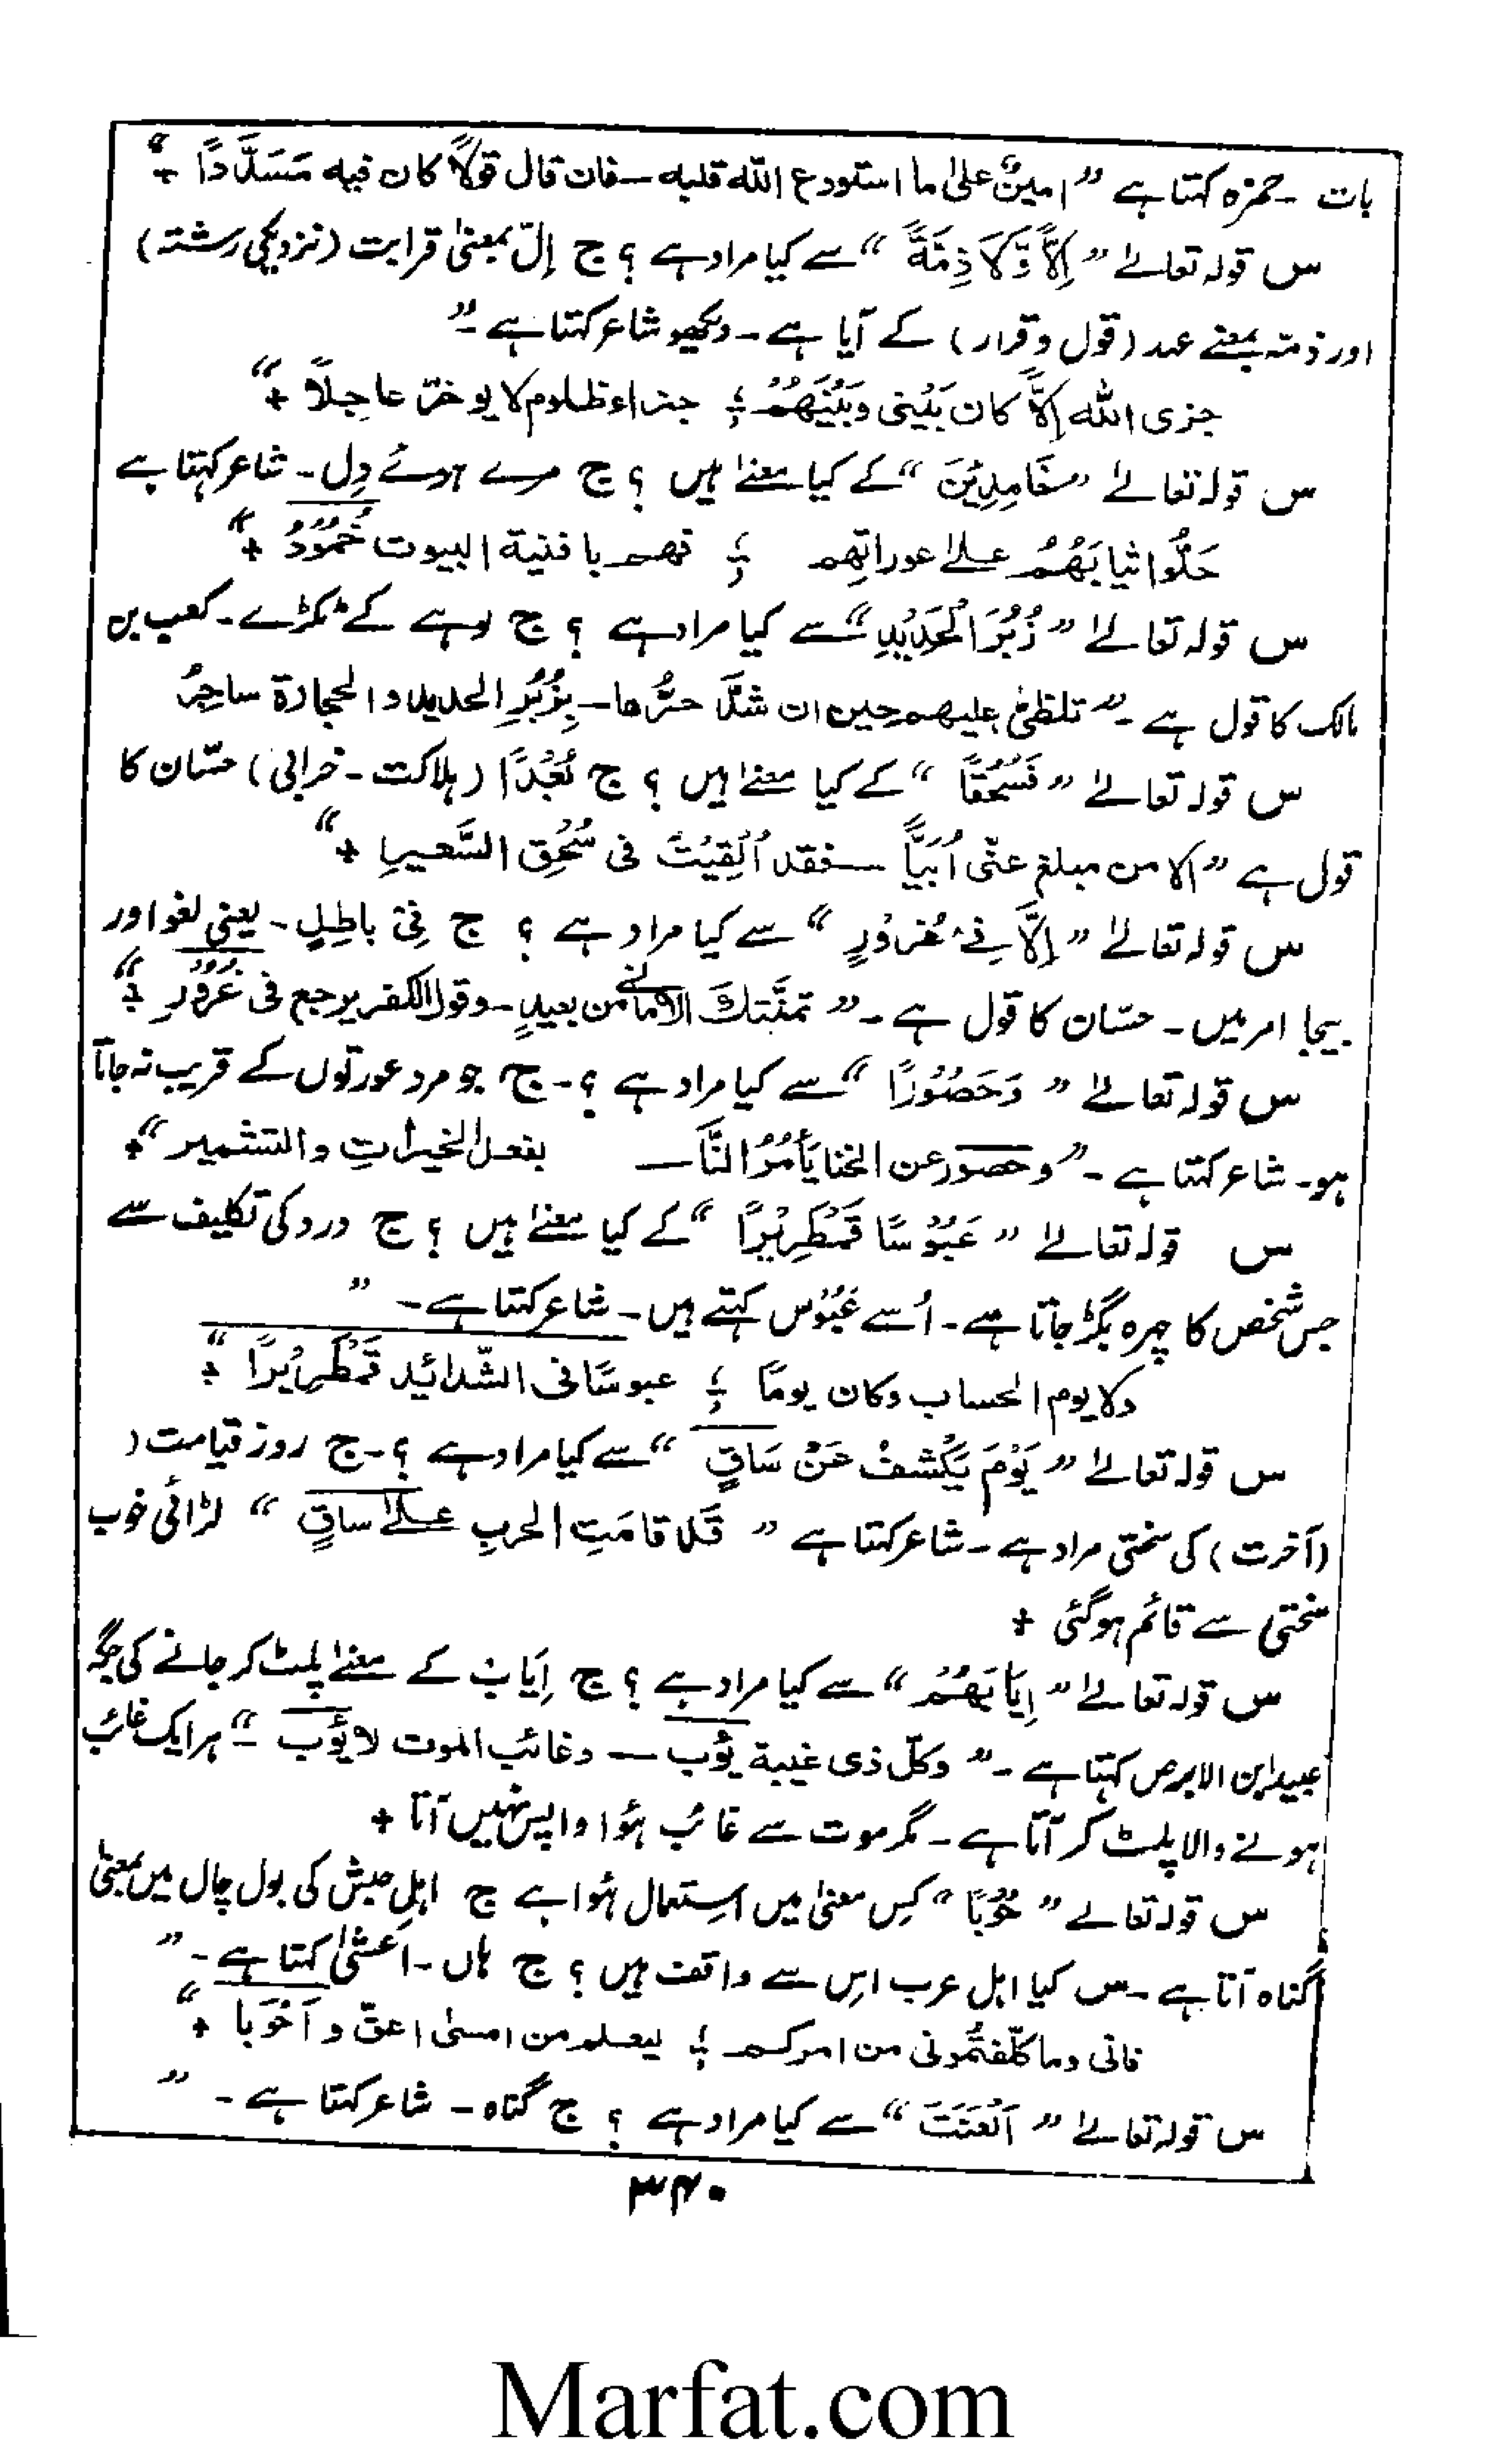 بات ۔ حمزہ کہتا ہے ” امینٌ علیٰ ما استودع اللہ قلبہ — فان قال قولًا کان فیہ مَسَدَّدًا “ +
س قولہ تعالےٰ ” اِلًّا وَّلَا ذِمَّةً “ سے کیا مراد ہے ؟ ج اِلّ بمعنیٰ قرابت (نزدیکی رشتہ)
اور ذمّہ بمعنے عہد (قول و قرار) کے آیا ہے ۔ دیکھو شاعر کہتا ہے ۔ ”
جزی اللہ اِلًّا کان بَیْنی وبَیْنَھُمْ ؛ جزاء ظلوم لا یوخرّ عاجلًا “ +
س قولہ تعالےٰ ” خَامِدِیْنَ “ کے کیا معنےٰ ہیں ؟ ج مرے ہوئے دِل ۔ شاعر کہتا ہے
حَلُّوا ثیابَھُمْ علےٰ عوراتِھم ؛ فھم بافنیة البیوت خُمُوْدُ “ +
س قولہ تعالےٰ ” زُبُرَ الْحَدِیْدِ “ سے کیا مراد ہے ؟ ج لوہے کے ٹکڑے ۔ کعب بن
مالک کا قول ہے ۔ ” تلظّیٰ علیھم حین ان شدَّ حرُّھا — بِزُبُرِ الحدید والحجارة ساجِرُ
س قولہ تعالےٰ ” فَسُحْقًا “ کے کیا معنےٰ ہیں ؟ ج بُعْدًا (ہلاکت ۔ خرابی) حسّان کا
قول ہے ” الا من مبلغ عنّی اُبَیًّا — فقد اُلْقِیْتَ فی سُحْقِ السَّعیرِ “ +
س قولہ تعالےٰ ” اِلَّا فِیْ غُرُوْرٍ “ سے کیا مراد ہے ؟ ج فِیْ باطِلٍ ۔ یعنی لغو اور
بیجا امر میں ۔ حسّان کا قول ہے ۔ ” تمنَّتكَ الامانی من بعیدٍ ۔ وقول الکفر یرجع فی غُرُوْرِ “ +
س قولہ تعالےٰ ” وَحَصُوْرًا “ سے کیا مراد ہے ؟ ۔ ج جو مرد عورتوں کے قریب نہ جاتا
ہو ۔ شاعر کہتا ہے ۔ ” وحصور عن الخنا یَأمُرُ النَّا — بفعل الخیراتِ والتشمیر “ +
س قولہ تعالےٰ ” عَبُوْسًا قَمْطَرِیْرًا “ کے کیا معنےٰ ہیں ؟ ج درد کی تکلیف سے
جس شخص کا چہرہ بگڑ جاتا ہے ۔ اُسے عَبُوْس کہتے ہیں ۔ شاعر کہتا ہے ۔ ”
ولا یوم الحساب وکان یومًا ؛ عبوسًا فی الشّدائید قَمْطَرِیْرًا “ +
س قولہ تعالےٰ ” یَوْمَ یُکْشَفُ عَنْ سَاقٍ “ سے کیا مراد ہے ؟ ۔ ج روز قیامت (
(آخرت) کی سختی مراد ہے ۔ شاعر کہتا ہے ” قَد قامَتِ الحربِ علےٰ ساقٍ “ لڑائی خوب
سختی سے قائم ہوگئی +
س قولہ تعالےٰ ” اِیَابَھُمْ “ سے کیا مراد ہے ؟ ج اِیَاب کے معنےٰ پلٹ کر جانے کی جگہ
عبید ابن الابرص کہتا ہے ۔ ” وکلّ ذی غیبة یؤب — وغائب الموت لا یؤَب “ ۔ ہر ایک غائب
ہونے والا پلٹ کر آتا ہے ۔ مگر موت سے غائب ہؤا واپس نہیں آتا +
س قولہ تعالےٰ ” حُوْبًا “ کس معنیٰ میں استعمال ہؤا ہے ج اہلِ حبش کی بول چال میں بمعنیٰ
گناہ آتا ہے ۔ س کیا اہل عرب اس سے واقف ہیں ؟ ج ہاں ۔ اعشیٰ کہتا ہے ۔ ”
فانی وما کلّفتُمونی من امرکم ؛ لیعلم من امسیٰ اعقّ واَحْوَبا “ +
س قولہ تعالےٰ ” اَلْعَنَتَ “ سے کیا مراد ہے ؟ ج گناہ ۔ شاعر کہتا ہے ۔ ”
۳۶۰
Marfat.com